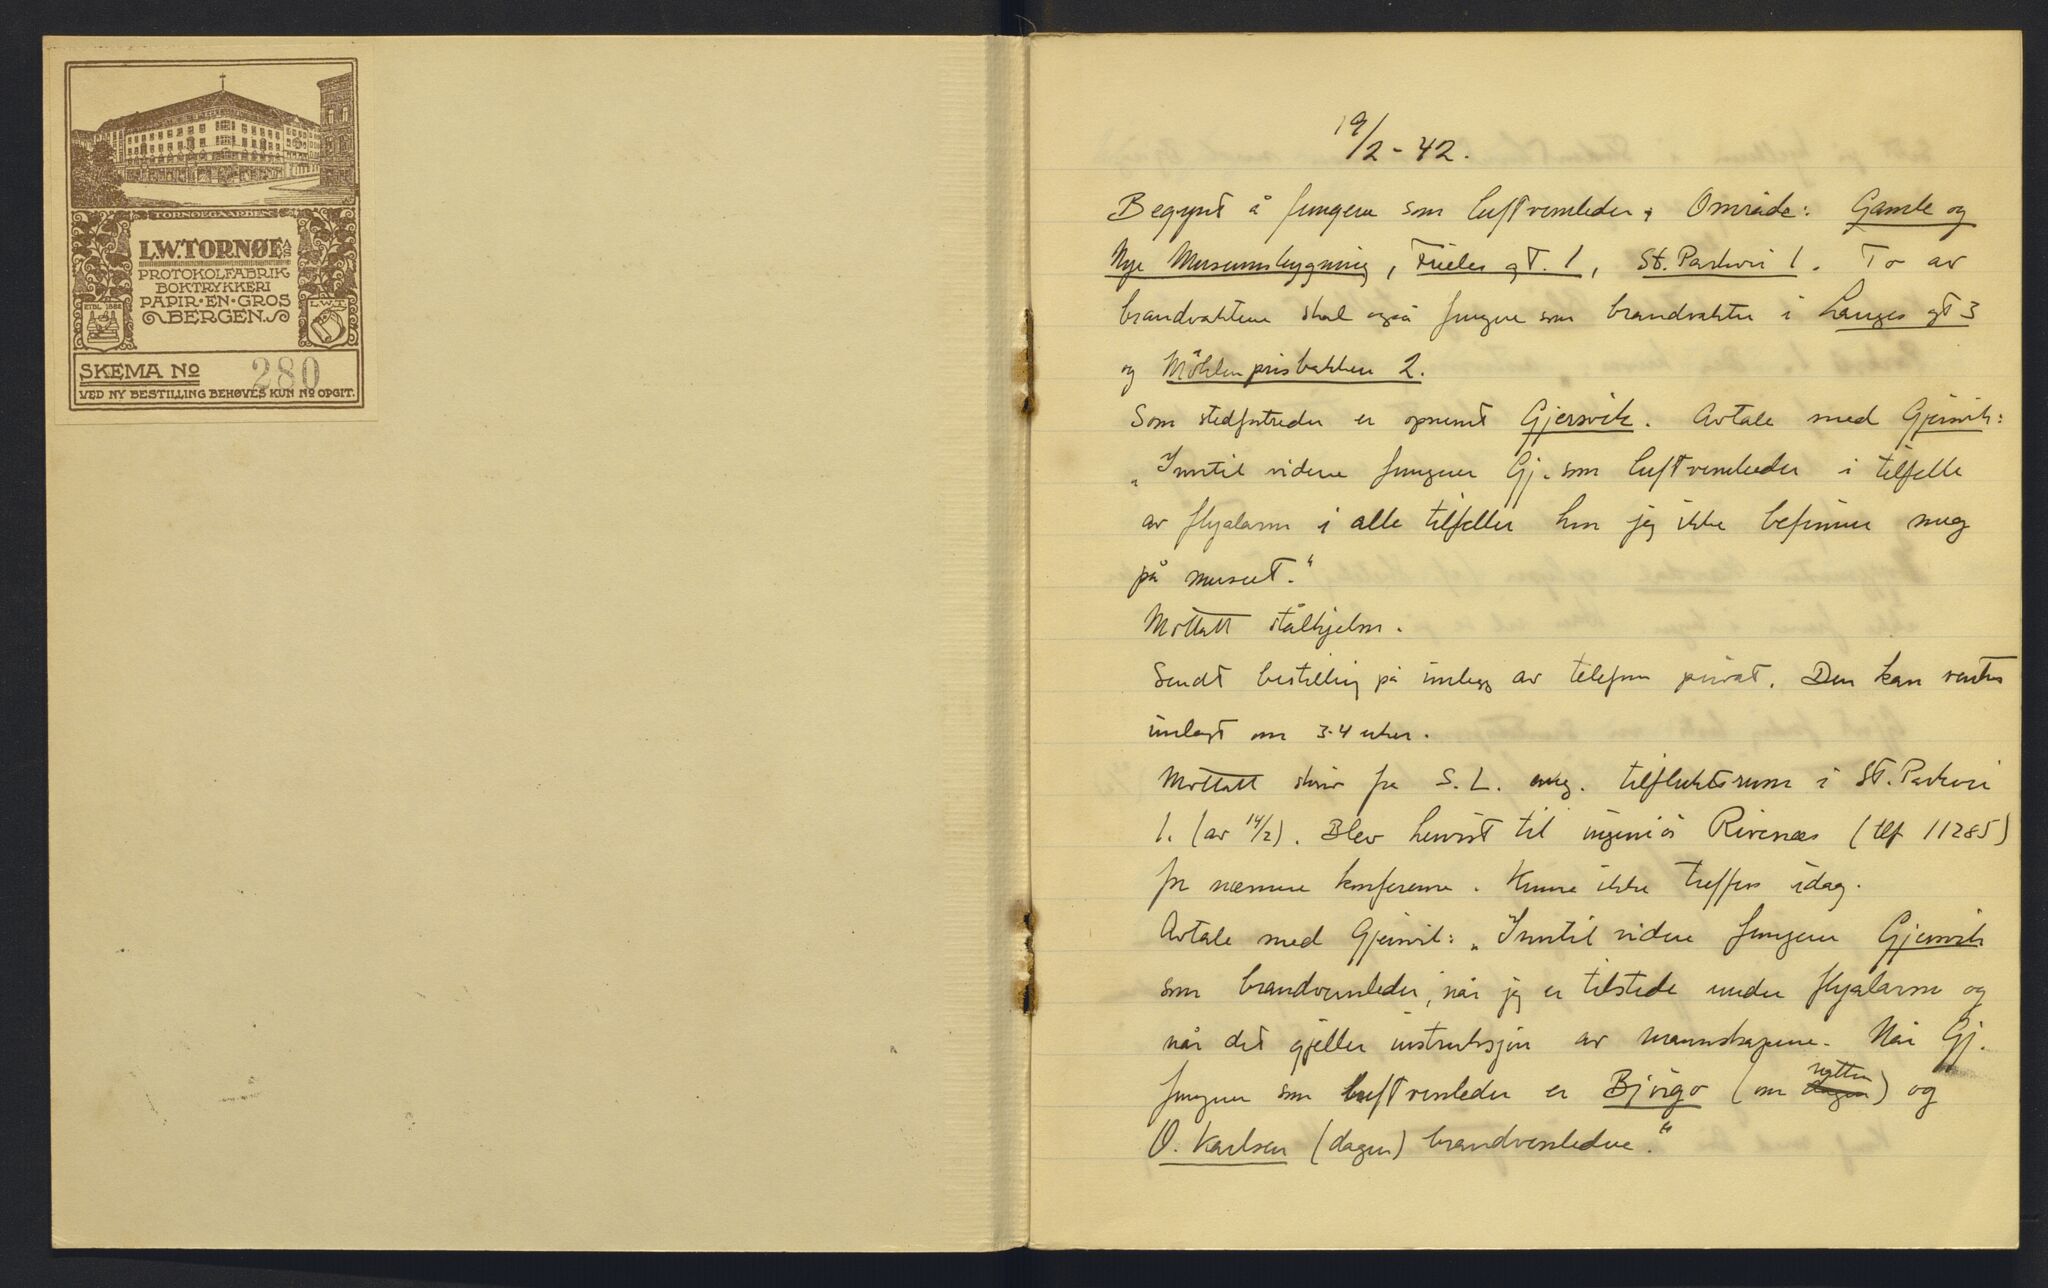 TORNØEGAARDEN
L.W. TORNØE A/S
PROTOKOLFABRIK
BOKTRYKKERI
PAPIR·EN·GROS
BERGEN.
ETBL. 1882
L.W.T.
SKEMA No 280
VED NY BESTILLING BEHØVES KUN No OPGIT.
19/2-42.
Begynt å fungere som luftvernleder. Område: Gamle og
Nye Museumsbygning, Frieles gt. 1, St. Parkvei 1. To av
brandvaktene skal også fungere som brandvakter i Langes gt 3
og Möhlenprisbakken 2.
Som stedfortreder er opnevnt Gjersvik. Avtale med Gjersvik:
„Inntil videre fungerer Gj. som luftvernleder i tilfelle
av flyalarm i alle tilfeller hvor jeg ikke befinner meg
på museet."
Mottatt stålhjelm.
Sendt bestilling på innlegg av telefon privat. Den kan ventes
innlagt om 3-4 uker.
Mottatt skriv fra S.L. ang. tilfluktsrum i St. Parkvei
1. (av 14/2). Blev henvist til ingeniör Rivenæs (tlf 11285)
for nærmere konferanse. Kunne ikke treffes idag.
Avtale med Gjersvik: „Inntil videre fungerer Gjersvik
som brandvernleder, når jeg er tilstede under flyalarm og
når det gjelder instruksjon av mannskapene. Når Gj.
fungerer som luftvernleder er Björgo (om dagen natten) og
O. Karlsen (dagen) brandvernledere."